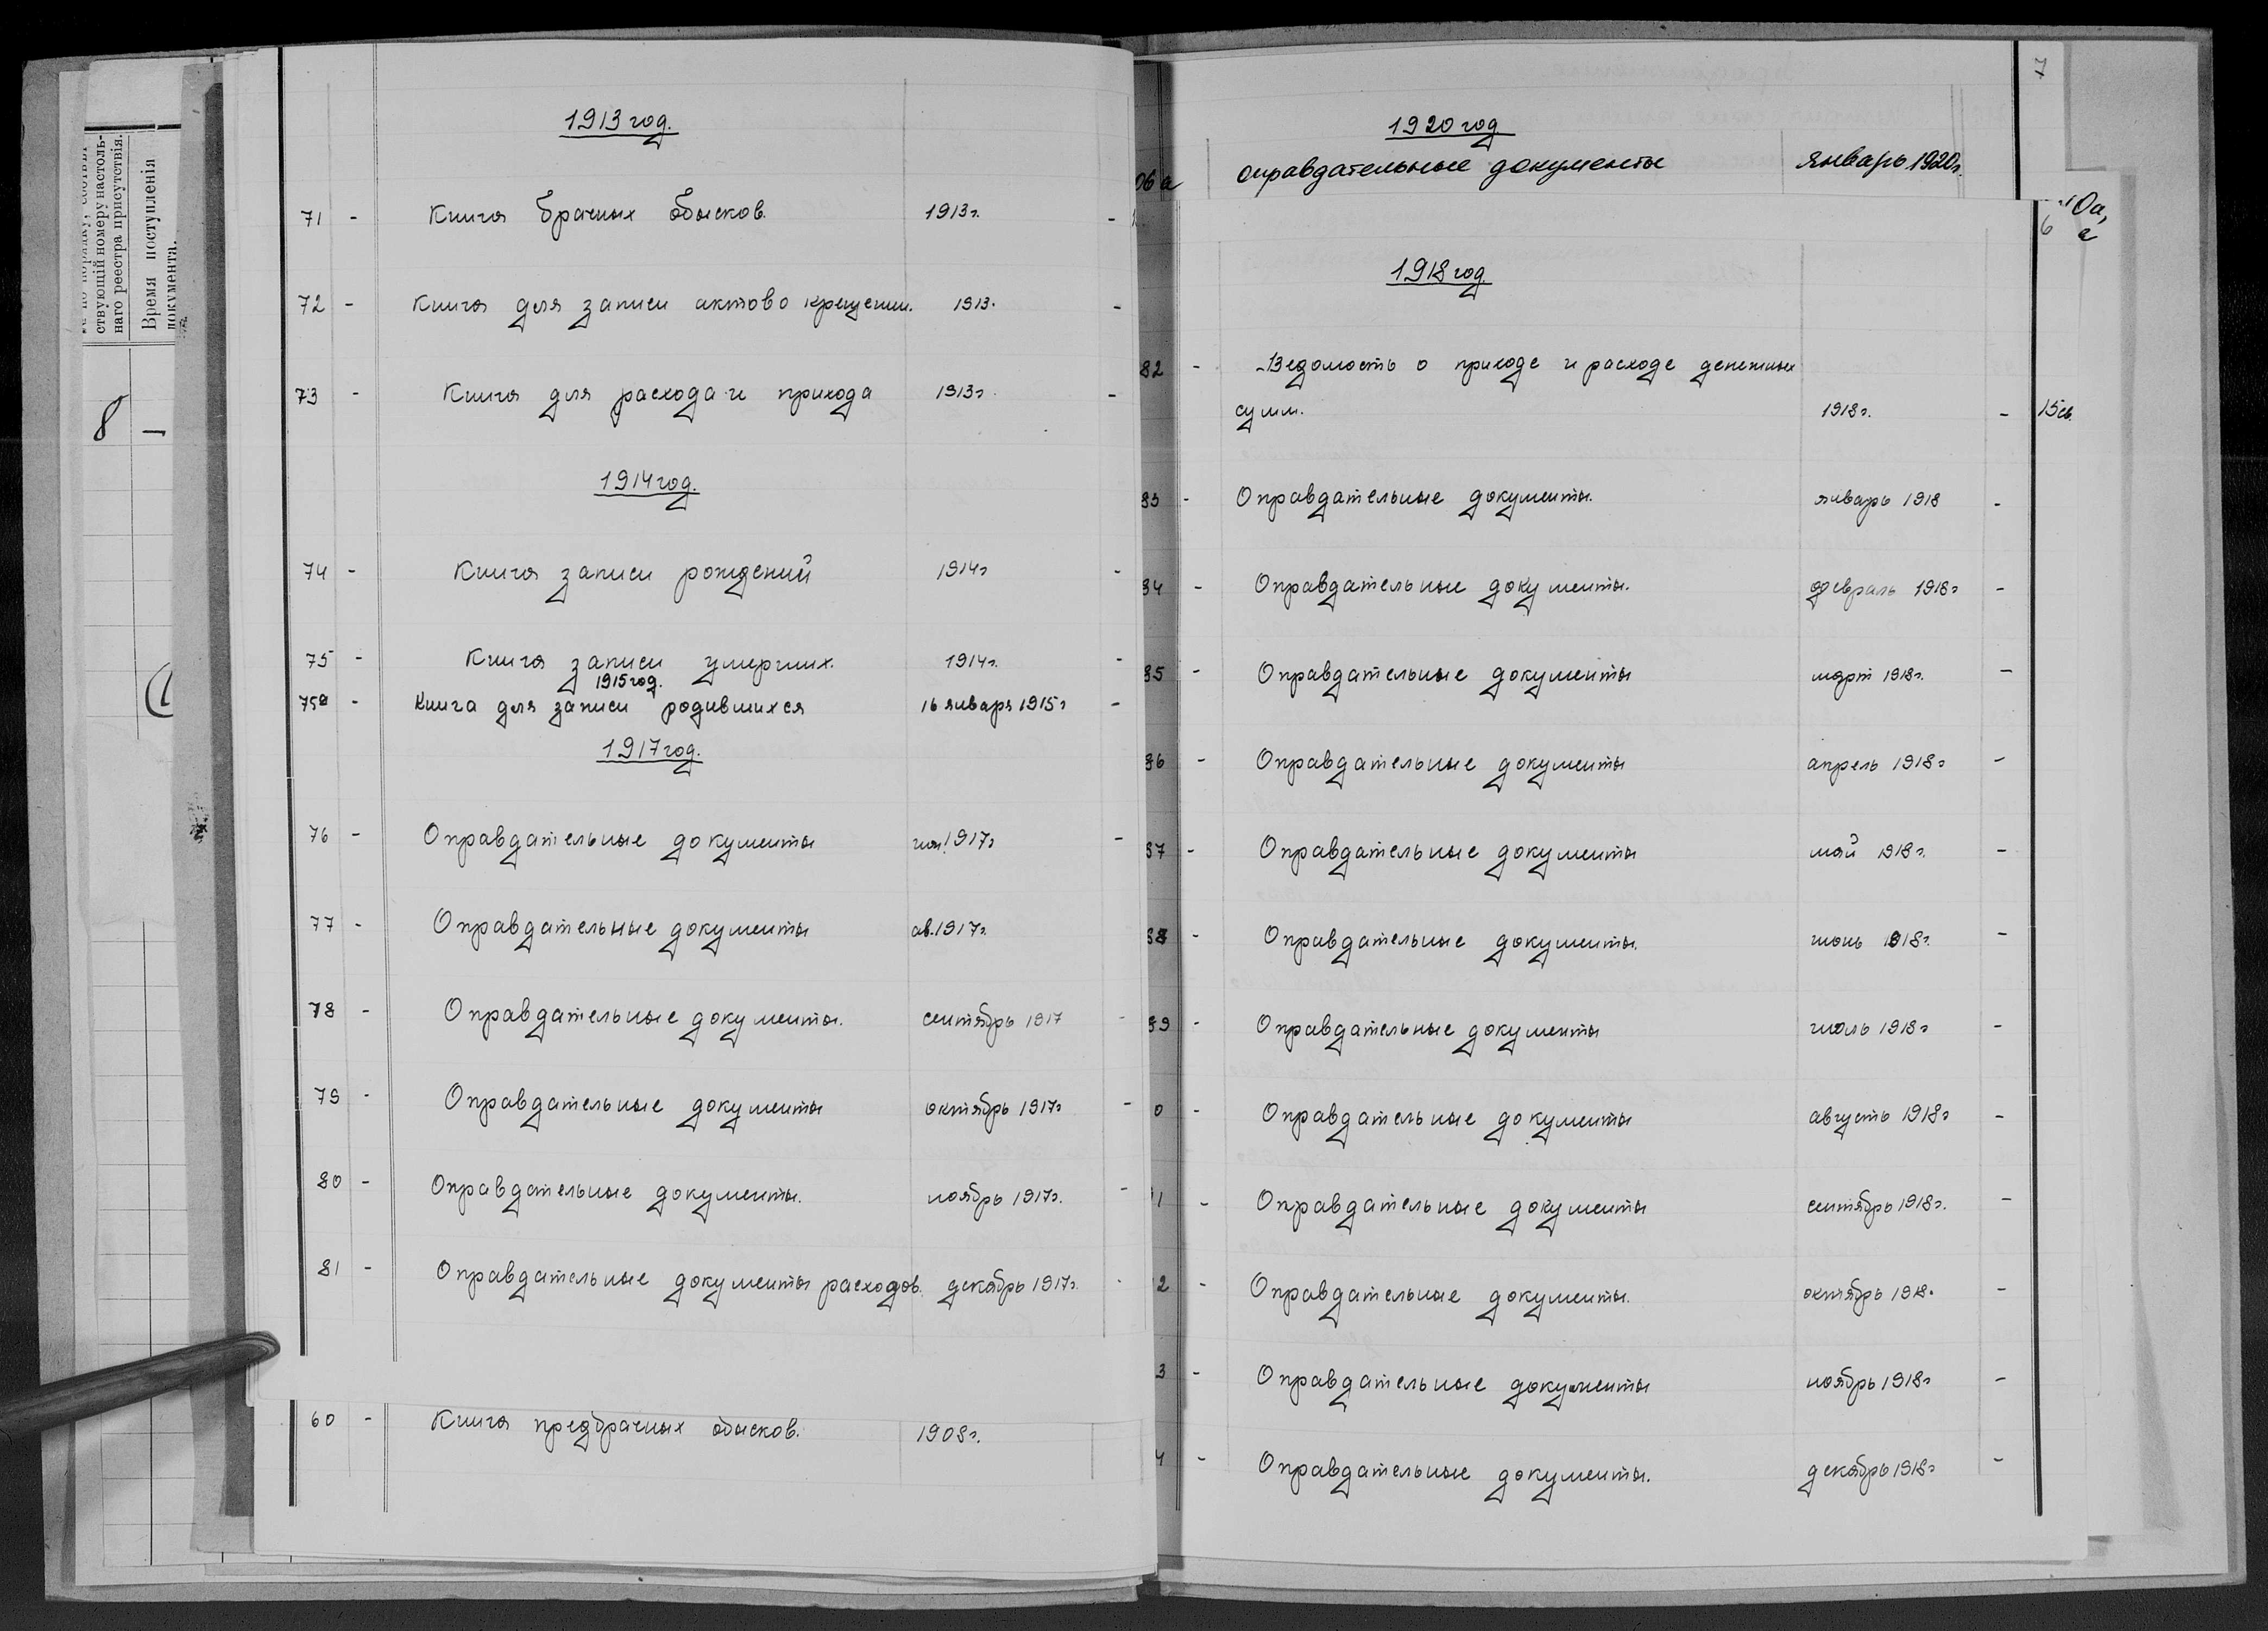 ствующій номеру настоль-
наго реестра присутствія.
Время поступленія
документа.
8 —
1913 год.
71 - Книга брачных обысков. 1913г. -
72 - Книга для записи актов о крещении. 1913. -
73 - Книга для расхода и прихода 1913г. -
1914 год.
74 - Книга записи рождений 1914г -
75 - Книга записи умерших. 1914г. -
1915 год.
75а - Книга для записи родившихся 16 января 1915г -
1917 год.
76 - Оправдательные документы 1917г -
77 - Оправдательные документы ав. 1917г.
78 - Оправдательные документы. сентябрь 1917 -
79 - Оправдательные документы октябрь 1917г -
80 - Оправдательные документы. ноябрь 1917г. -
81 - Оправдательные документы расходов. декабрь 1917г. -
60 - Книга предбрачных обысков. 1908г.
7
1920 год
06а оправдательные документы январь 1920г.
10а,
6 а
1918 год
82 - Ведомость о приходе и расходе денежных
сумм. 1918г. - 15св.
83 - Оправдательные документы. январь 1918 -
84 - Оправдательные документы. февраль 1918г -
85 - Оправдательные документы март 1918г. -
86 - Оправдательные документы апрель 1918г -
87 - Оправдательные документы май 1918г. -
88 - Оправдательные документы. июнь 1918г. -
89 - Оправдательные документы июль 1918г -
0 - Оправдательные документы августь 1918г -
1 - Оправдательные документы сентябрь 1918г. -
2 - Оправдательные документы. октябрь 1918. -
3 - Оправдательные документы ноябрь 1918г -
4 - Оправдательные документы. декабрь 1918г -